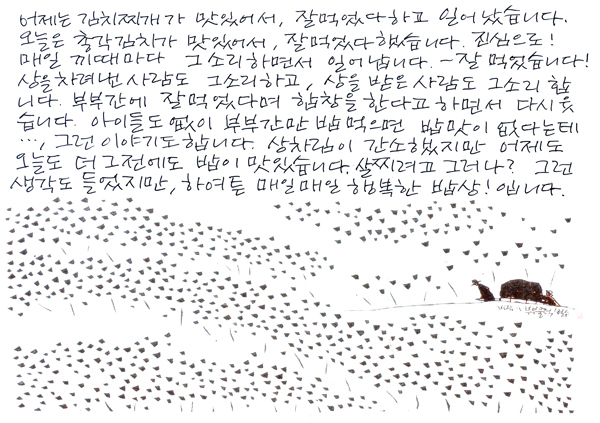 어제는 김치찌개가 맛있어서, 잘먹었다하고 일어났습니다.
오늘은 총각김치가 맛있어서, 잘먹었다했습니다. 진심으로!
매일 끼때마다 그소리하면서 일어납니다. ~잘 먹었습니다!
상을차려낸 사람도 그소리하고, 상을 받은 사람도 그소리 합
니다. 부부간에 잘먹었다며 합창을 한다고 하면서 다시 웃
습니다. 아이들도 없이 부부간만 밥 먹으면 밥맛이 없다는데
…, 그런 이야기도합니다. 상차림이 간소했지만 어제도
오늘도 더 그전에도 밥이 맛있습니다. 살찌려고 그러나? 그런
생각도 들었지만, 하여튼 매일매일 행복한 밥상! 입니다.